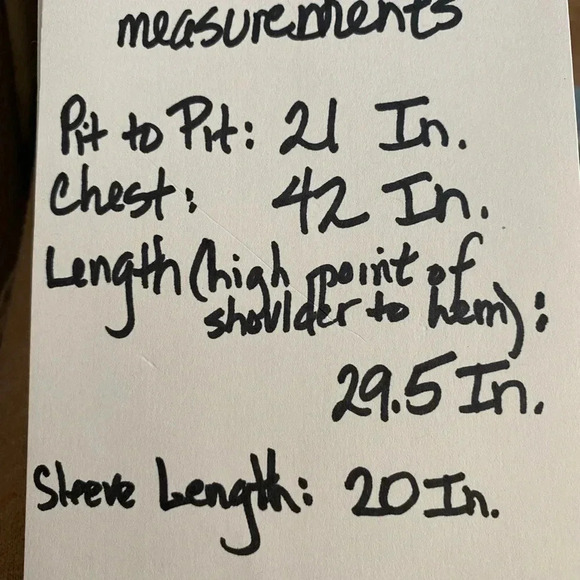 measurements
Pit to Pit: 21 In.
Chest: 42 In.
Length (high point of
shoulder to hem):
29.5 In.
Sleeve Length: 20 In.